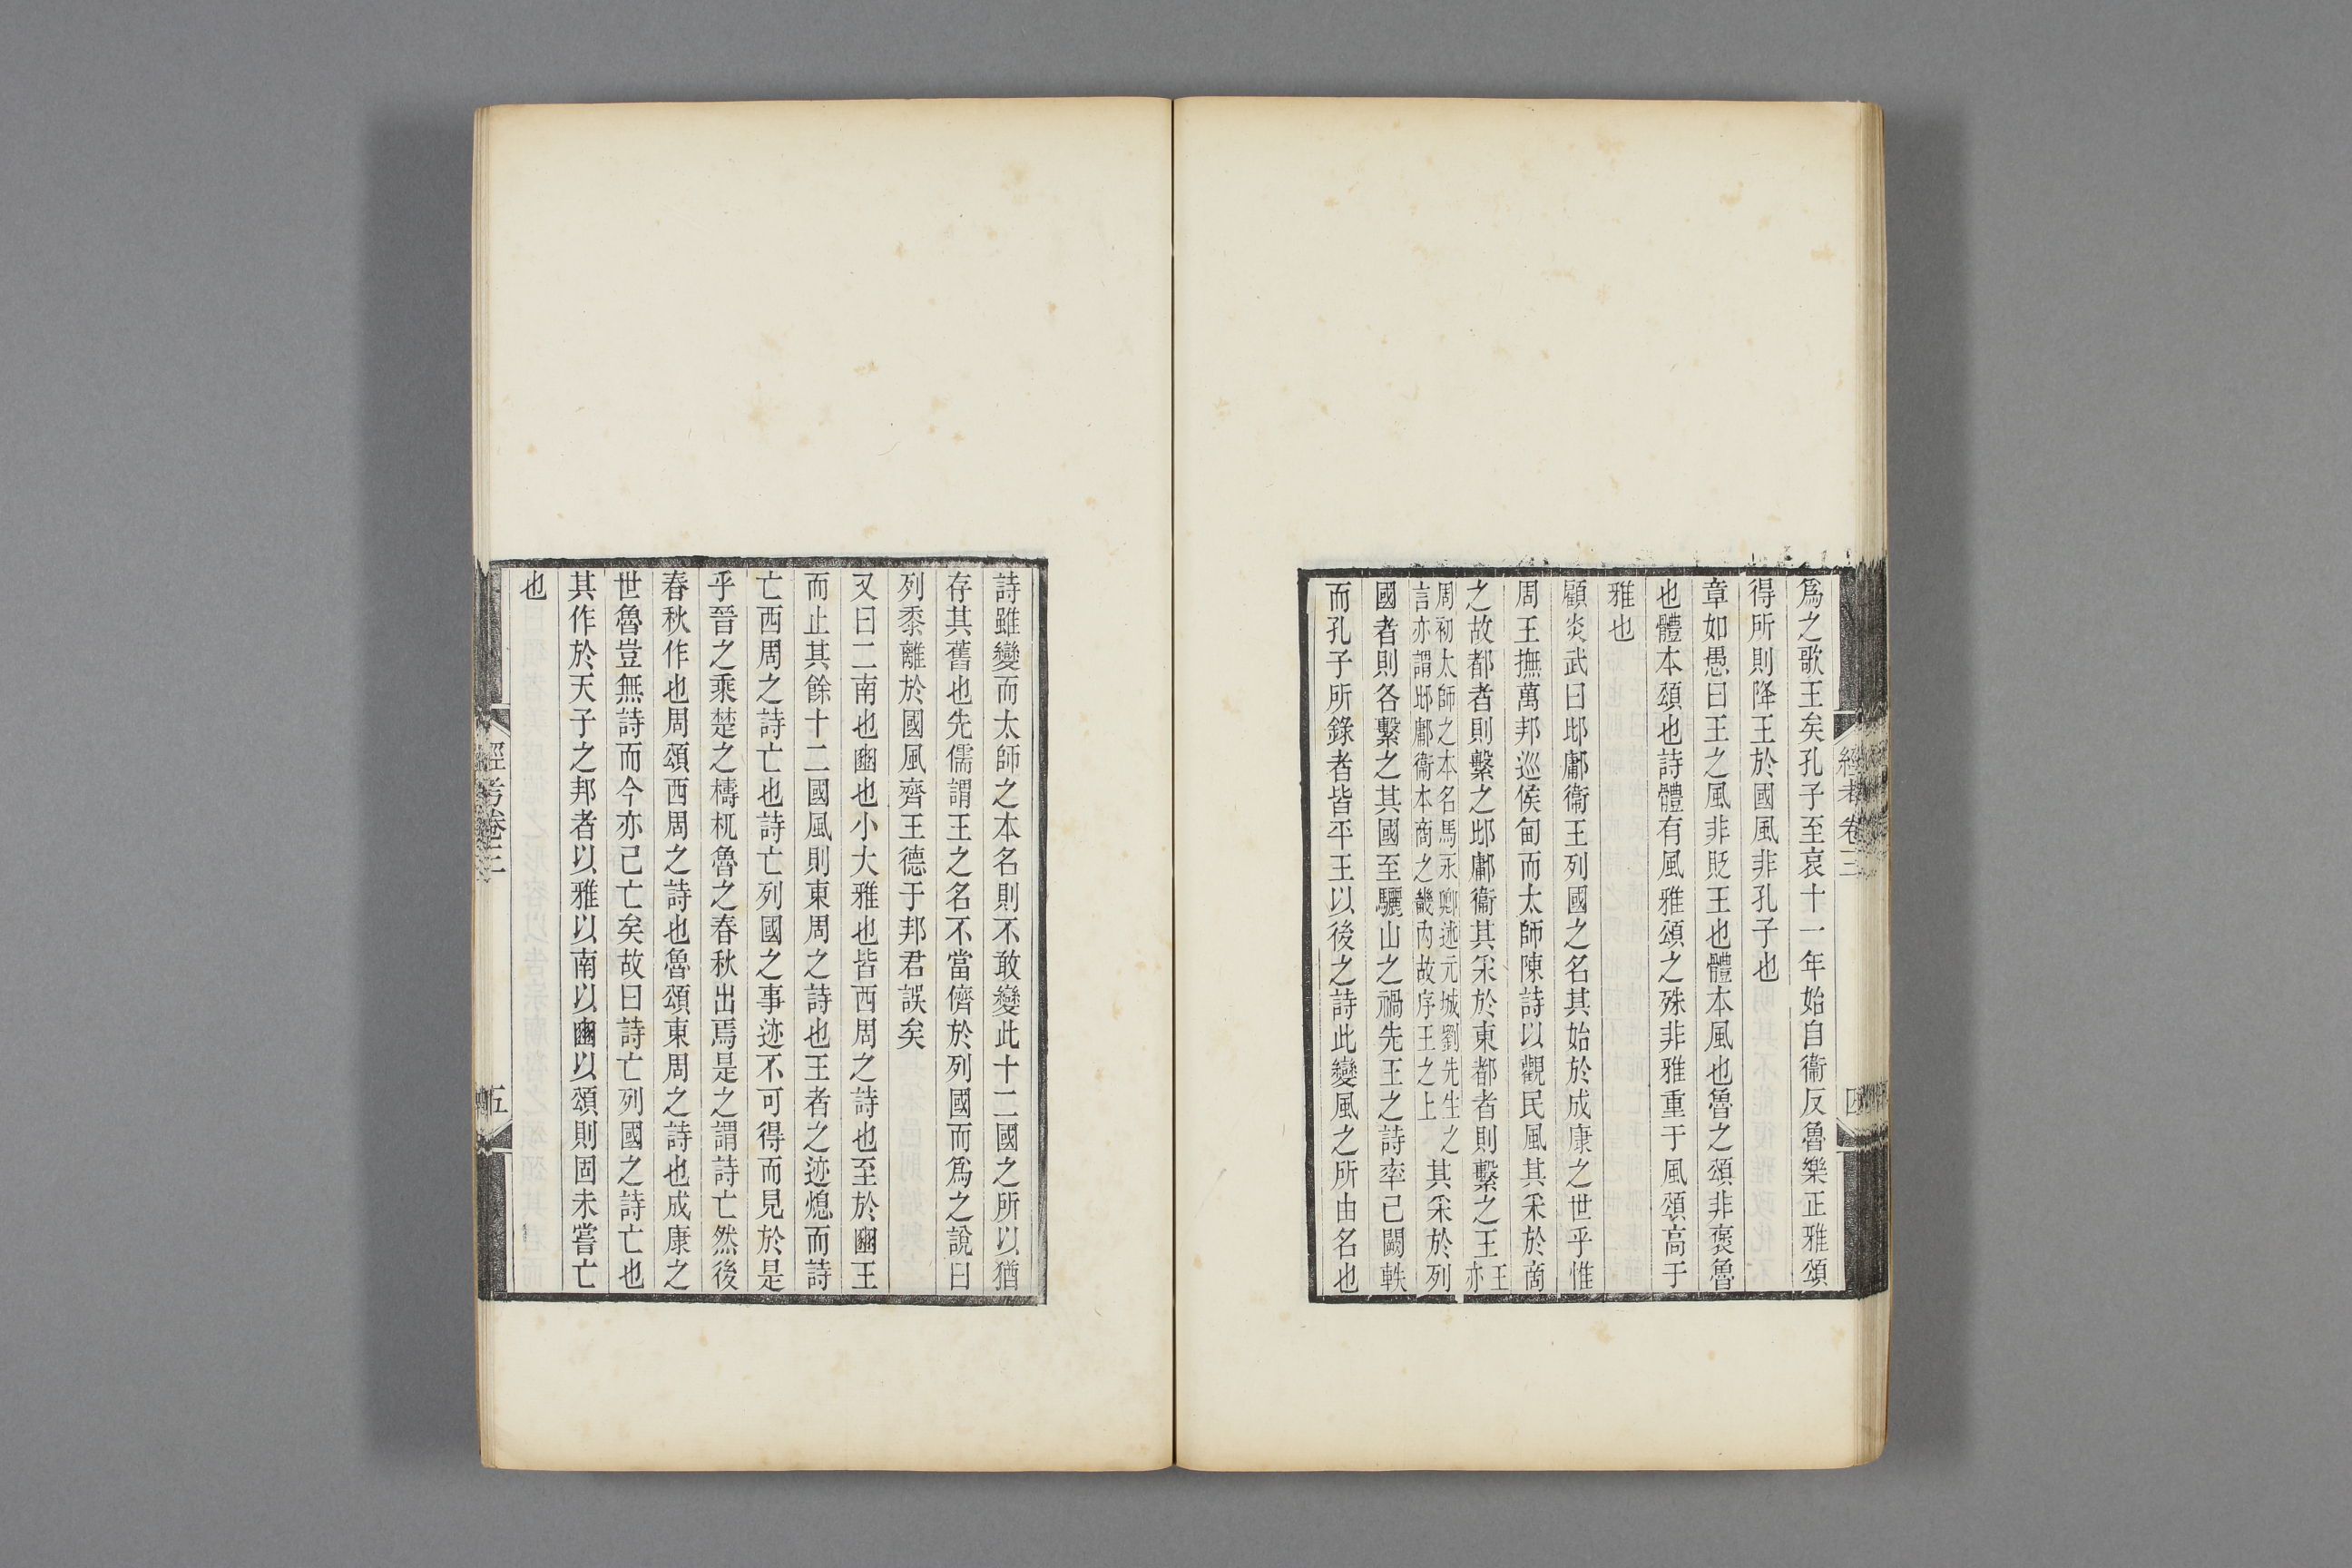 爲之歌王矣孔子至哀十一年始自衞反魯樂正雅頌
得所則降王於國風非孔子也
章如愚曰王之風非貶王也體本風也魯之頌非褒魯
也體本頌也詩體有風雅頌之殊非雅重于風頌高于
雅也
顧炎武曰邶鄘衞王列國之名其始於成康之世乎惟
周王撫萬邦巡侯甸而太師陳詩以觀民風其采於商
之故都者則繫之邶鄘衞其采於東都者則繫之王王亦
周初太師之本名馬永卿述元城劉先生之
言亦謂邶鄘衞本商之畿內故序王之上
其采於列
國者則各繫之其國至驪山之禍先王之詩率已闕軼
而孔子所錄者皆平王以後之詩此變風之所由名也
經考卷三
四
詩雖變而太師之本名則不敢變此十二國之所以猶
存其舊也先儒謂王之名不當儕於列國而爲之說曰
列黍離於國風齊王德于邦君誤矣
又曰二南也豳也小大雅也皆西周之詩也至於豳王
而止其餘十二國風則東周之詩也王者之迹熄而詩
亡西周之詩亡也詩亡列國之事迹不可得而見於是
乎晉之乘楚之檮杌魯之春秋出焉是之謂詩亡然後
春秋作也周頌西周之詩也魯頌東周之詩也成康之
世魯豈無詩而今亦已亡矣故曰詩亡列國之詩亡也
其作於天子之邦者以雅以南以豳以頌則固未嘗亡
也
經考卷三
五